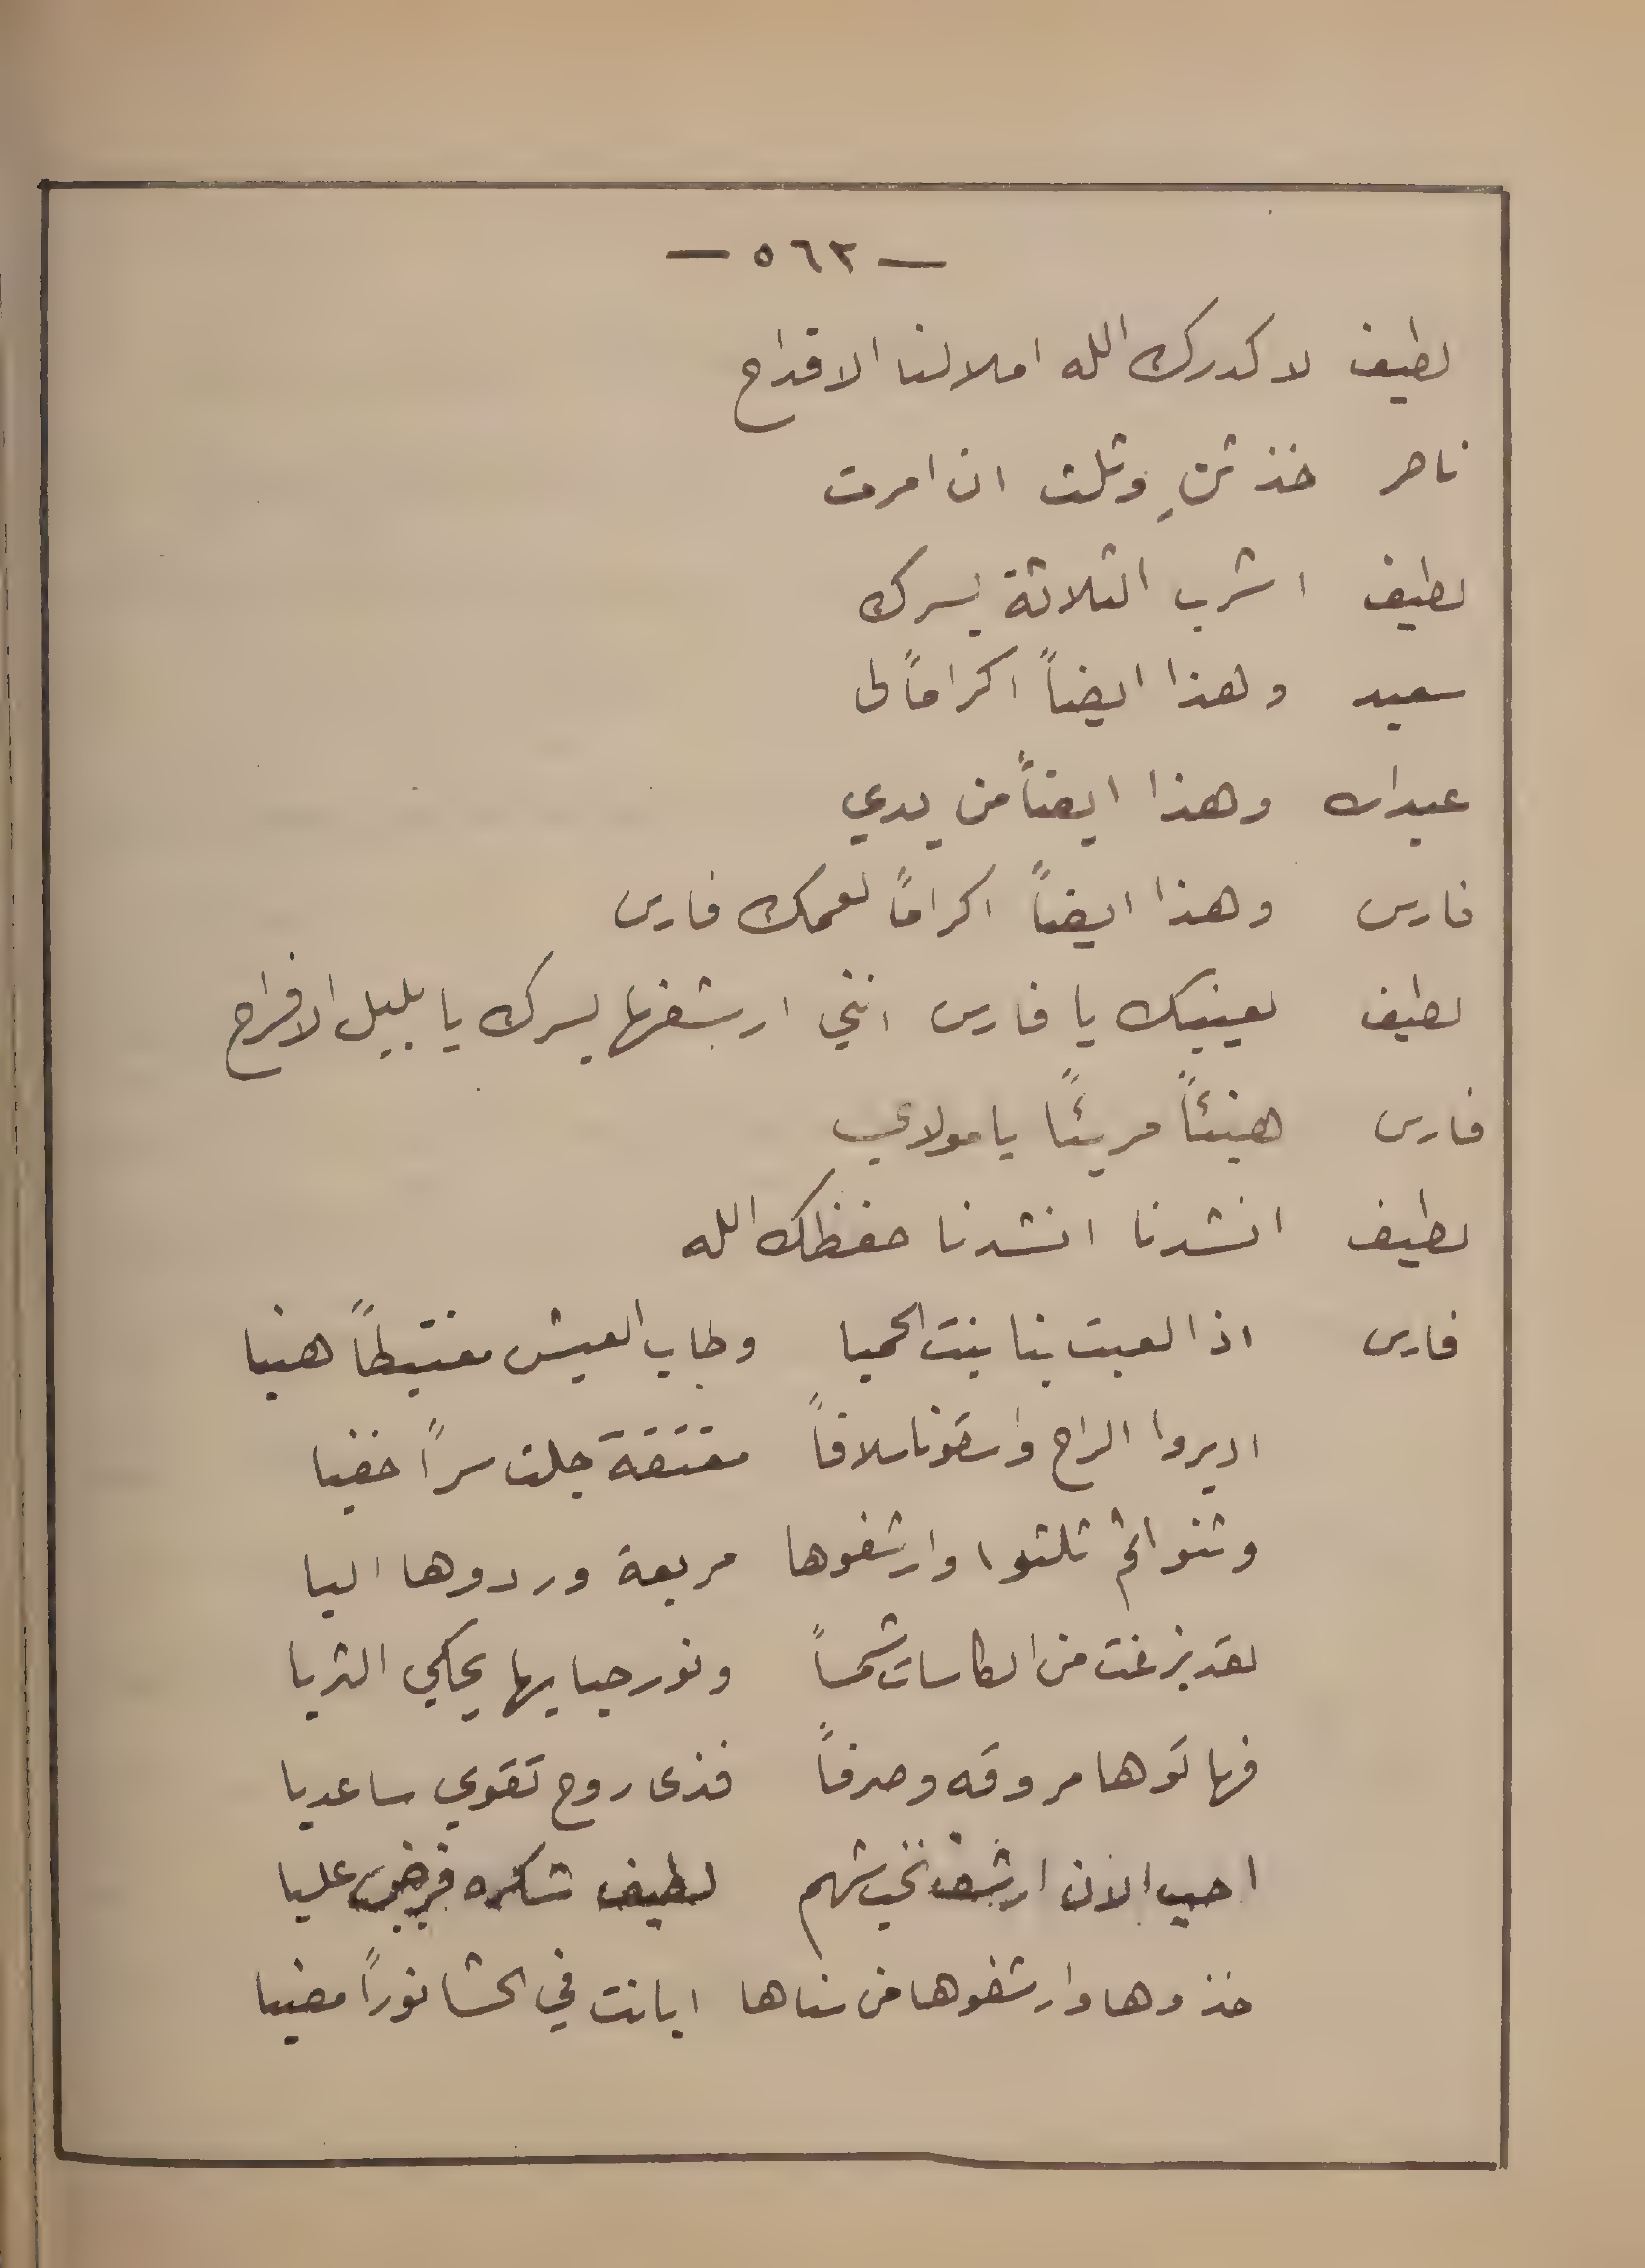 — ٥٦٣ —
لطيف لا كدرك الله املا لنا الاقداح
ناصر خذ ثنِ وثلث ان امرت
لطيف اشرب الثلاثة بسرك
سعيد وهذا ايضاً اكراماً لى
عبدالله وهذا ايضاً من يدي
فارس وهذا ايضاً اكراماً لعمك فارس
لطيف لعينيك يا فارس انني ارشفها بسرك يا بلبل الافراح
فارس هنيئاً مريئاً يا مولاي
لطيف انشدنا انشدنا حفظك الله
فارس اذا لعبت بنا بنت الحميا وطاب العيش مغتبطاً هنيا
اديروا الراح واسقونا سلافاً معتقة جلت سراً خفيا
وثنوا ثم ثلثوا وارشفوها مربعة وردوها اليا
لقد بزغت من الكاسات شمساً ونور حبابها يحكي الثريا
فهاتوها مروقه وصرفاً فذى روح تقوي ساعديا
احب الان ارشف نخب شهم لطيف شكره فرض عليا
خذوها وارشفوها من سناها ابانت في الحشا نوراً مضيا